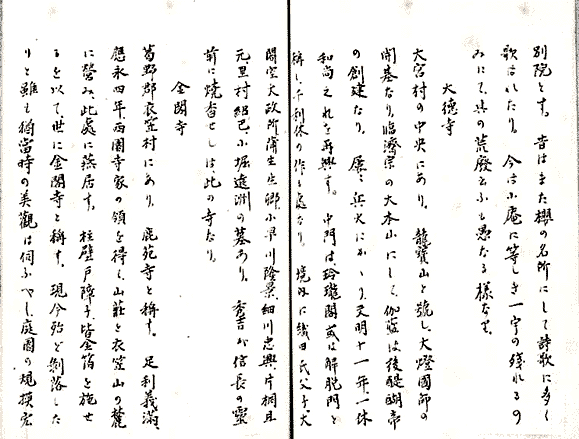 別院とす。昔はまた櫻の名所にして詩歌に多く
歌はれたり。今は小庵に等しき一宇の殘れるの
みにて其の荒廢云ふも愚なる樣なり。
大德寺
大宮村の中央にあり。龍寶山と號し、大燈國師の
開基なり。臨濟宗の大本山にして、伽藍は後醍醐帝
の創建なり。屢〻兵火にかゝり、文明十一年一休
和尚之れを再興す。中門は玲瓏閣或は解脫門と
稱し、千利休の作る處なり。境內に織田氏父子、大
閤、空大政所、蒲生氏鄕、小早川隆景、細川忠興、片桐且
元、里村紹巴、小堀遠洲の墓あり。秀吉が信長の靈
前に燒香せしは、此の寺なり。
金閣寺
葛野郡衣笠村にあり。鹿苑寺と稱す。足利義滿、
應永四年西園寺家の領を得て、山莊を衣笠山の麓
に營み、此處に燕居す。柱壁戶障子、皆金箔を施せ
るを以て世に金閣寺と稱す。現今殆ど剝落した
りと雖も猶當時の美觀は伺ふべし。庭園の規模宏